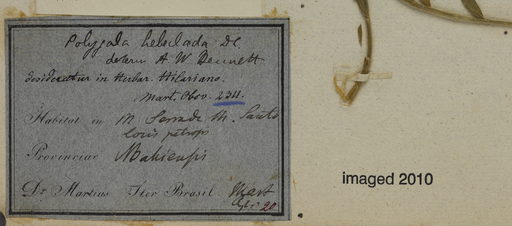 Polygala hebeclada DC
determ A W Bennett
desideratur in Herbar. Hilariano.
Mart. Obsv. 2311.
Habitat in M. Serra de M. Santo
locis petros
Provinciae Bahiensis
Dr Martius Iter Brasil Mart
20
imaged 2010